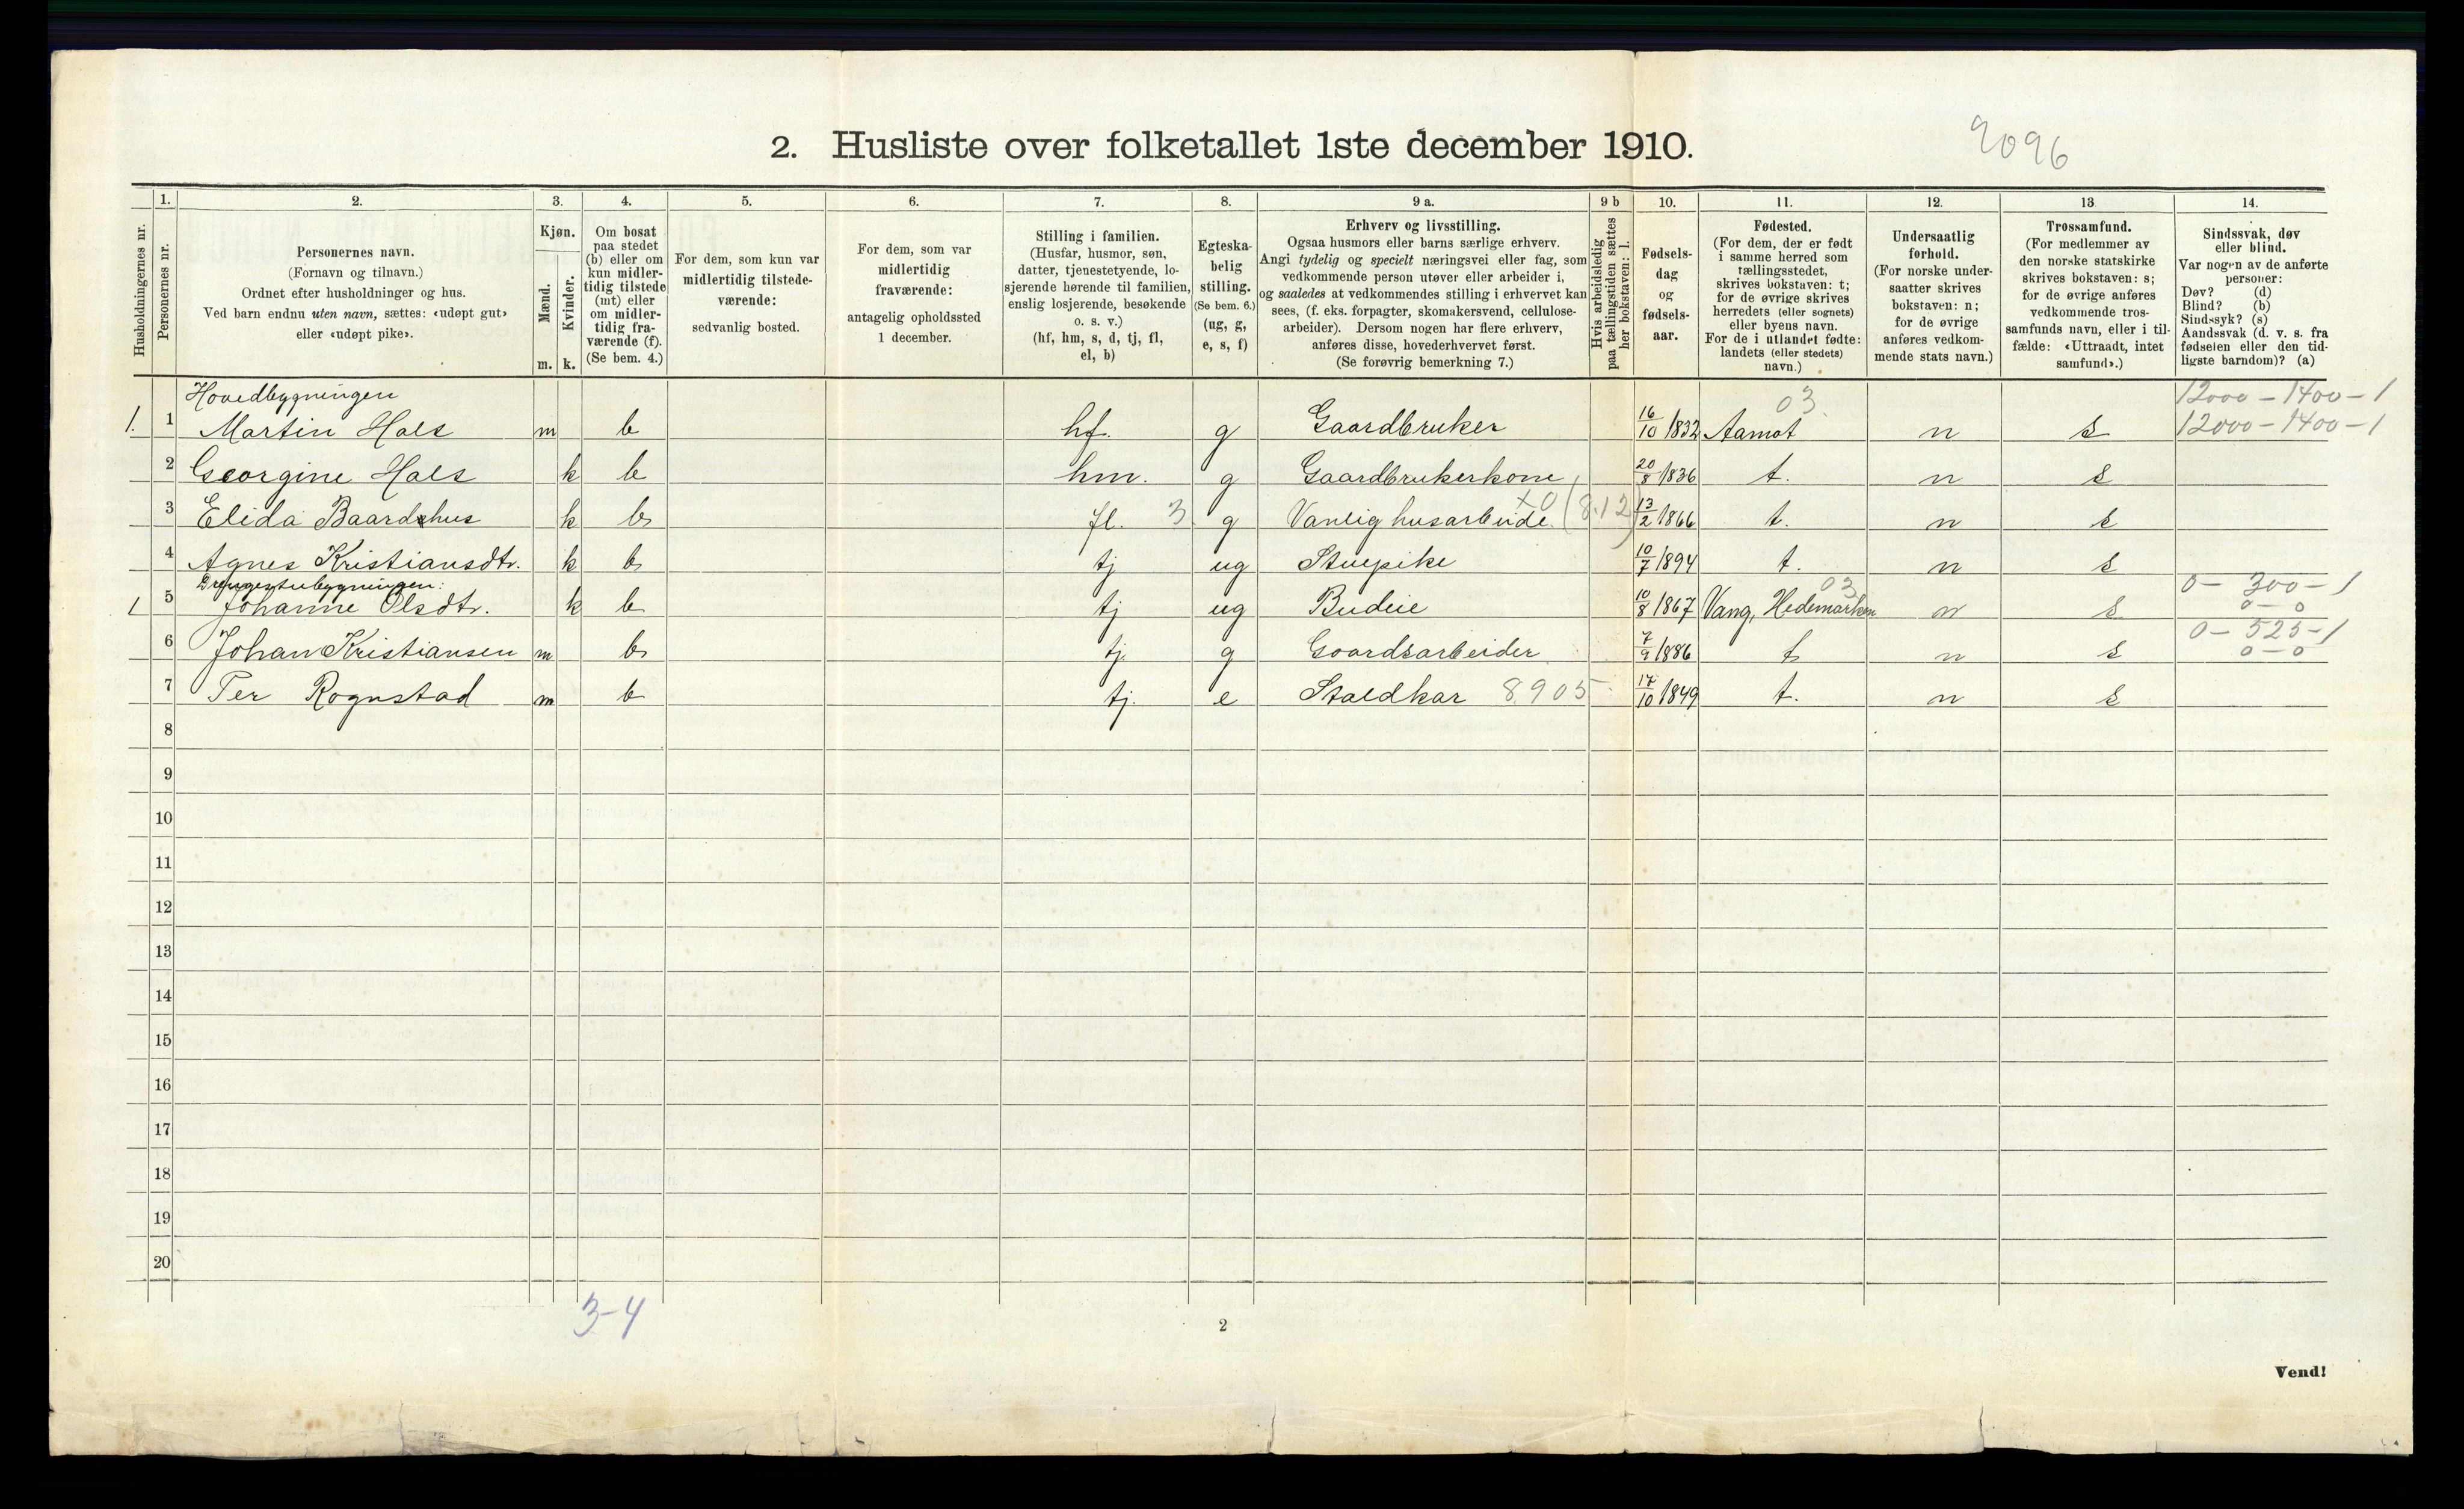 2. Husliste over folketallet 1ste december 1910.
9096
Husholdningernes nr.
1. Personernes nr.
2. Personernes navn.
(Fornavn og tilnavn.)
Ordnet efter husholdninger og hus.
Ved barn endnu uten navn, sættes: «udøpt gut»
eller «udøpt pike».
3. Kjøn.
Mænd. m.
Kvinder. k.
4. Om bosat
paa stedet
(b) eller om
kun midler-
tidig tilstede
(mt) eller
om midler-
tidig fra-
værende (f).
(Se bem. 4.)
5. For dem, som kun var
midlertidig tilstede-
værende:
sedvanlig bosted.
6. For dem, som var
midlertidig
fraværende:
antagelig opholdssted
1 december.
7. Stilling i familien.
(Husfar, husmor, søn,
datter, tjenestetyende, lo-
sjerende hørende til familien,
enslig losjerende, besøkende
o. s. v.)
(hf, hm, s, d, tj, fl,
el, b)
8. Egteska-
belig
stilling.
(Se bem. 6.)
(ug, g,
e, s, f)
9 a. Erhverv og livsstilling.
Ogsaa husmors eller barns særlige erhverv.
Angi tydelig og specielt næringsvei eller fag, som
vedkommende person utøver eller arbeider i,
og saaledes at vedkommendes stilling i erhvervet kan
sees, (f. eks. forpagter, skomakersvend, cellulose-
arbeider). Dersom nogen har flere erhverv,
anføres disse, hovederhvervet først.
(Se forøvrig bemerkning 7.)
9 b Hvis arbeidsledig
paa tællingstiden sættes
her bokstaven: l.
10. Fødsels-
dag
og
fødsels-
aar.
11. Fødested.
(For dem, der er født
i samme herred som
tællingsstedet,
skrives bokstaven: t;
for de øvrige skrives
herredets (eller sognets)
eller byens navn.
For de i utlandet fødte:
landets (eller stedets)
navn.)
12. Undersaatlig
forhold.
(For norske under-
saatter skrives
bokstaven: n;
for de øvrige
anføres vedkom-
mende stats navn.)
13 Trossamfund.
(For medlemmer av
den norske statskirke
skrives bokstaven: s;
for de øvrige anføres
vedkommende tros-
samfunds navn, eller i til-
fælde: «Uttraadt, intet
samfund».)
14. Sindssvak, døv
eller blind.
Var nogen av de anførte
personer:
Døv? (d)
Blind? (b)
Sindssyk? (s)
Aandssvak (d. v. s. fra
fødselen eller den tid-
ligste barndom)? (a)
Hovedbygningen 03. 12000-1400-1
1. 1 Martin Hals m b hf. g Gaardbruker 16/10 1832 Aamot n s 12000-1400-1
2 Georgine Hals k b hm. g Gaardbrukerkone 20/8 1836 t. n s
3 Elida Baardshus k b fl. 3 g Vanlig husarbeide. x0 (8.12) 13/2 1866 t. n s
4 Agnes Kristiansdtr. k b tj ug Stuepike 10/7 1894 t. n s
Drengestubygningen: 03 0- 300-1
1 5 Johanne Olsdtr. k b tj ug Budeie 10/8 1867 Vang, Hedemarken n s 0-0
0- 525-1
6 Johan Kristiansen m b tj. g Gaardsarbeider 7/9 1886 t n s 0-0
7 Per Rognstad m b tj. e Staldkar 8.905 17/10 1849 t. n s
8
9
10
11
12
13
14
15
16
17
18
19
20
3-4
2
Vend!